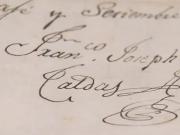 y Setiembre
Fran.co Joseph
Caldas